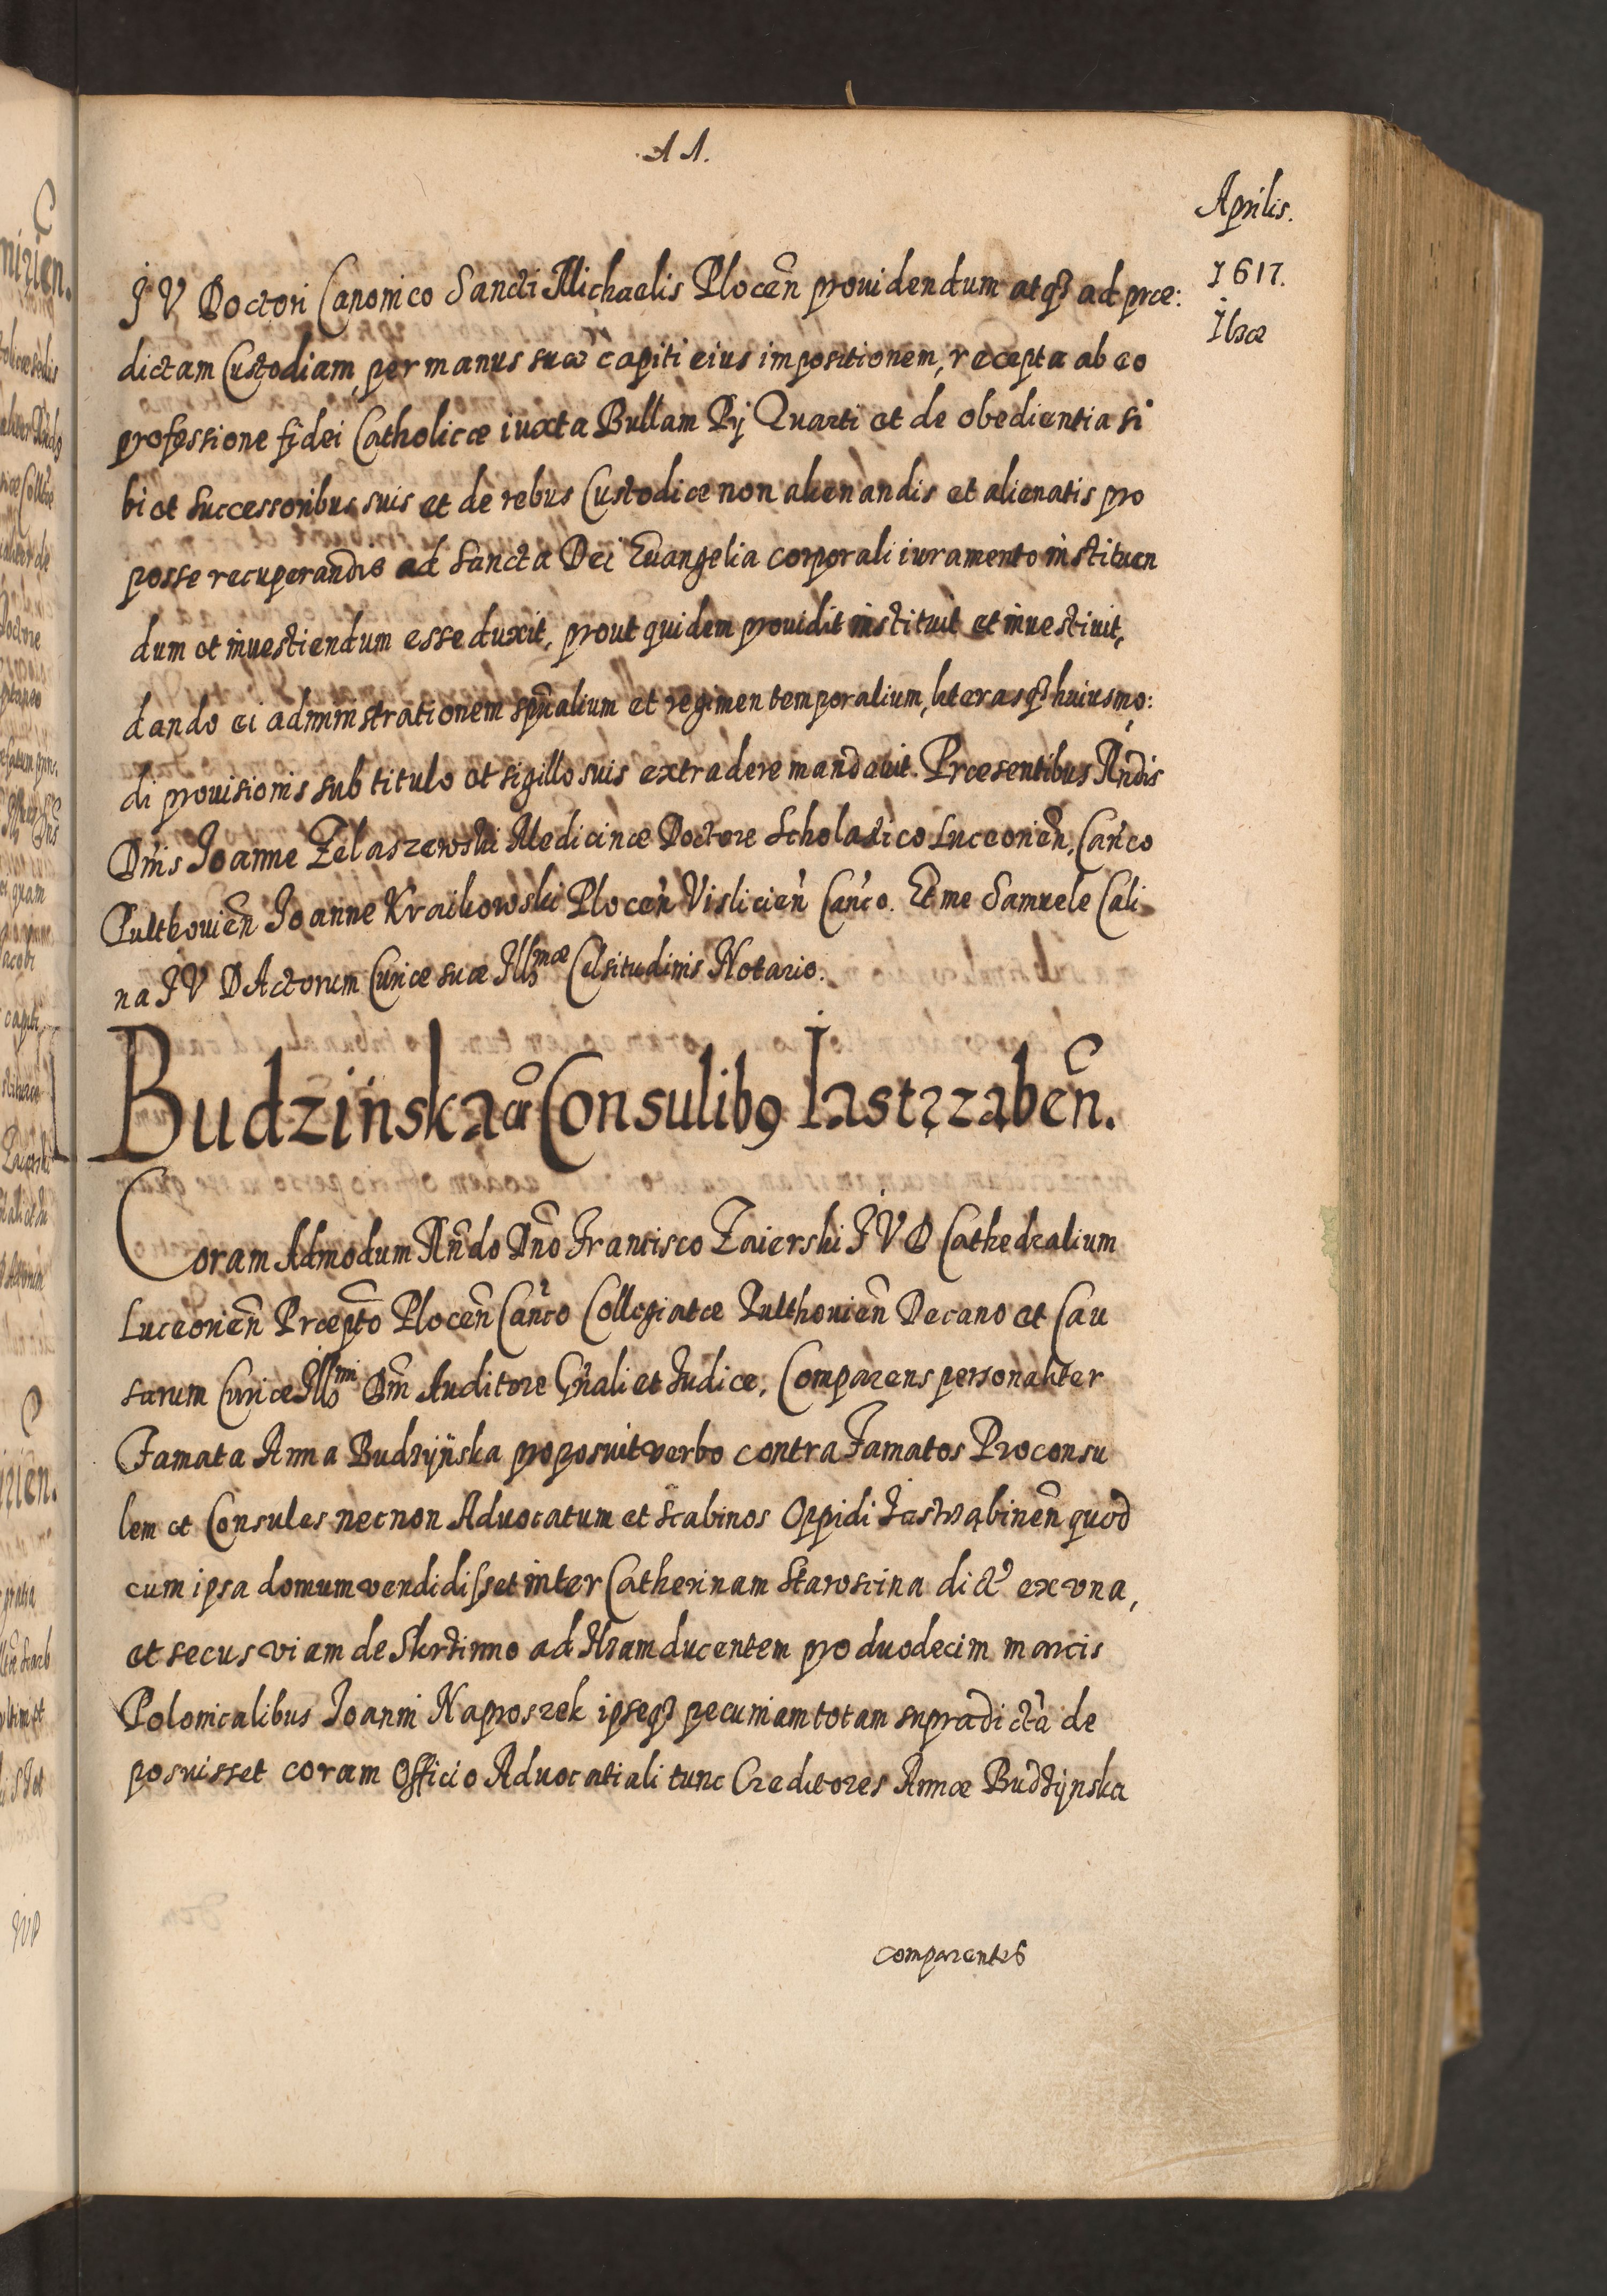 11.
Aprilis.
1617.
Ilzæ
J V Doctori Canonico Sancti Michaelis Plocen̄ prouidendum atq3 ad præ:
dictam Custodiam per manus suæ capiti eius impositionem, recepta ab eo
professione fidei Catholicæ iuxta Bullam Pij Quarti et de obedientia si
bi et Successoribus suis et de rebus Custodiæ non alienandis et alienatis pro
posse recuperandis ad Sancta Dei Euangelia corporali iuramento instituen
dum et inuestiendum esse duxit, prout quidem prouidit instituit et inuestiuit,
dando ei administrationem spūalium et regimen temporalium, literasq3 huiusmo:
di prouisionis sub titulo et sigillo suis extradere mandauit. Præsentibus Rn̄dis
Dn̄is Joanne Zelaszewski Medicinæ Doctore Scholastico Luceorien̄, Can̄co
Pulthouien̄ Joanne Kraikowski Plocen̄ Vislicien̄ Can̄co. Et me Samuele Cali
na J V D Actorum Curiæ suæ Illmæ Celsitudinis Notario.
Budzinska cū Consulib9 Jastrząben̄.
Coram Admodum Rn̄do Dn̄o Francisco Zaierski J V D Cathedralium
Luceorien̄ Præpto Plocen̄ Can̄co Collegiatæ Pulthouien̄ Decano et Cau
sarum Curiæ Illmi Dn̄i Auditore Gn̄ali et Judice, Comparens personaliter
Famata Anna Budzijńska proposuit verbo contra Famatos Proconsu
lem et Consules necnon Aduocatum et Scabinos Oppidi Jastrząbinen̄ quod
cum ipsa domum vendidisset inter Catherinam Staroscina dict' ex vna,
et secus viam de ad Ilzam ducentem pro duodecim marcis
Polonicalibus Joanni Naproszek ipseq3 pecuniam totam supradictā de
posuisset coram Officio Aduocatiali tunc Creditores Annæ Budzijnska
comparentes